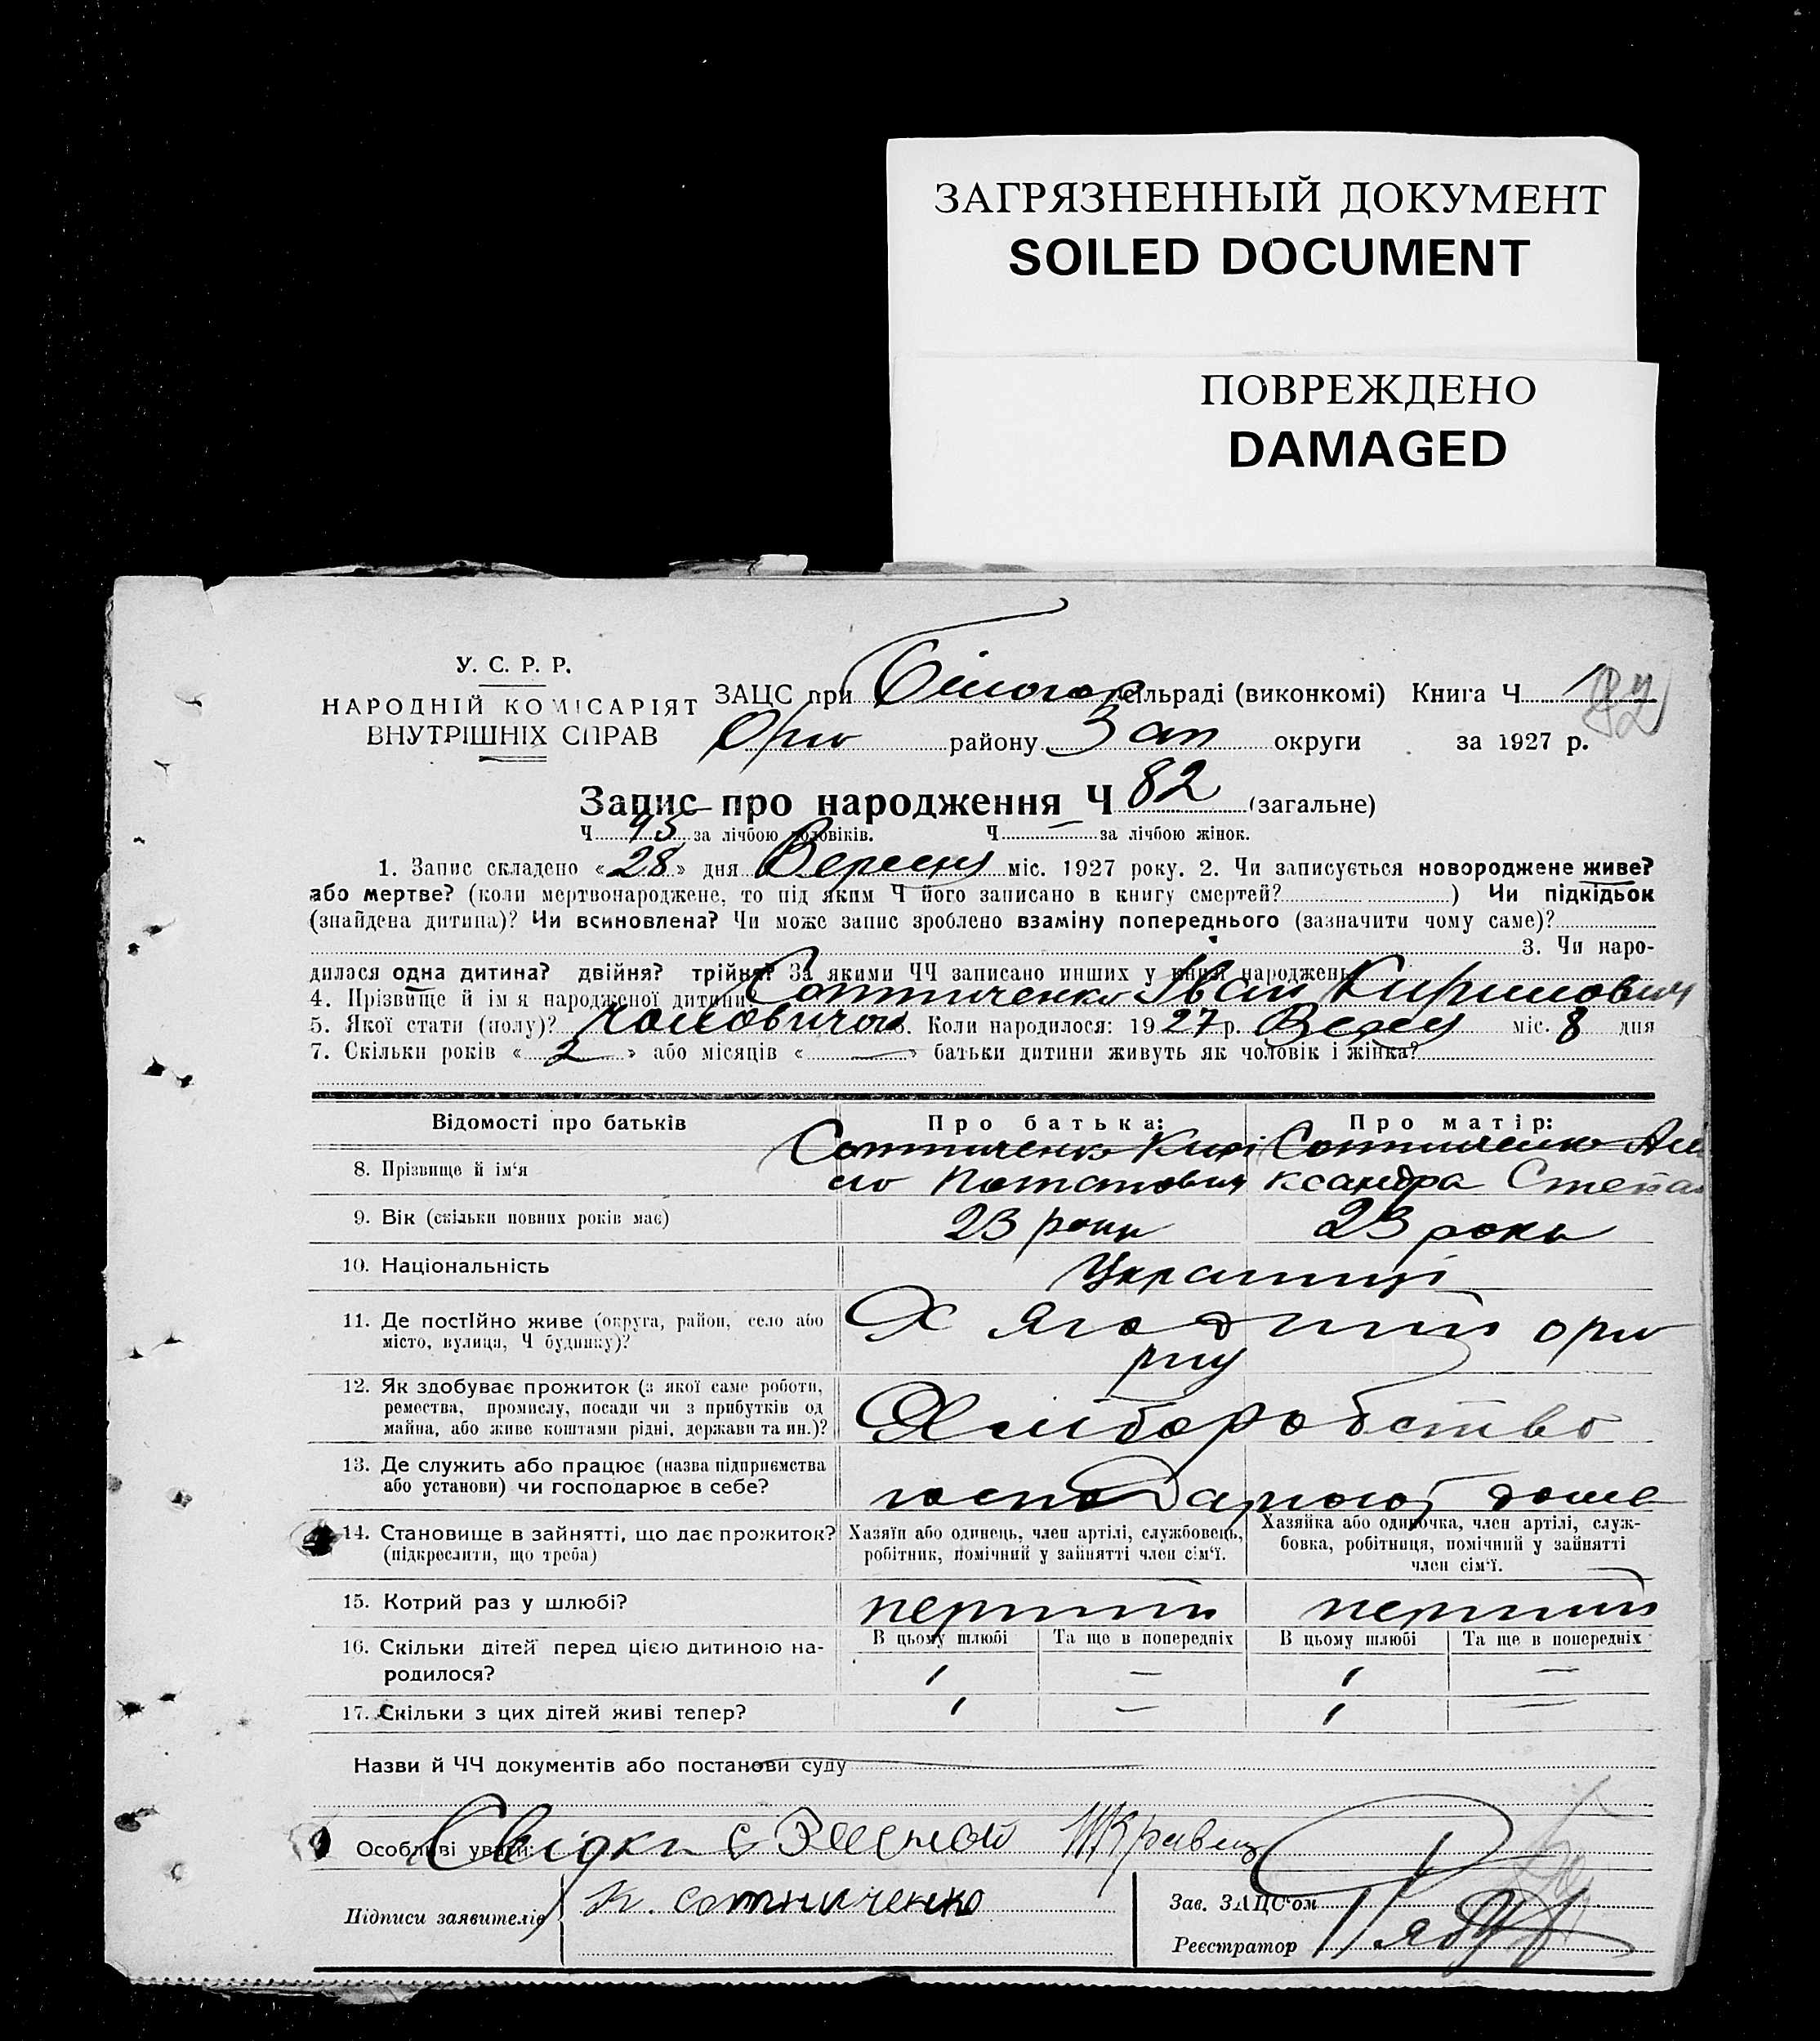 ЗАГРЯЗНЕННЫЙ ДОКУМЕНТ
SOILED DOCUMENT
ПОВРЕЖДЕНО
DAMAGED
У. С. Р. Р.
НАРОДНІЙ КОМІСАРІЯТ
ВНУТРІШНІХ СПРАВ
ЗАЦС при Білогор сільраді (виконкомі) Книга Ч 1
82
Оріх району Зап округи за 1927 р.
Запис про народження Ч 82 (загальне)
Ч 45 за лічбою чоловіків. Ч — за лічбою жінок.
1. Запис складено «28» дня Вересня міс. 1927 року. 2. Чи записується новороджене живе?
або мертве? (коли мертвонароджене, то під яким Ч його записано в книгу смертей? ) Чи підкідьок
(знайдена дитина)? Чи всиновлена? Чи може запис зроблено взаміну попереднього (зазначити чому саме)?
3. Чи наро-
дилася одна дитина? двійня? трійня? За якими ЧЧ записано инших у книзі народжень
4. Прізвище й ім'я народженої дитини Сотниченко Іван Кирилович
5. Якої стати (полу)? чоловичої 6. Коли народилося: 1927 р. Верес міс. 8 дня
7. Скільки років «2» або місяців «—» батьки дитини живуть як чоловік і жінка?
Відомості про батьків Про батька: Про матір:
8. Прізвище й ім'я Сотниченко Кири Сотниченко Але
ло Потапович ксандра Степан
9. Вік (скільки повних років має) 23 роки 23 роки
10. Національність Українці
11. Де постійно живе (округа, район, село або Х Ягідний оріх
місто, вулиця, Ч будинку)? рну
12. Як здобуває прожиток (з якої саме роботи,
ремества, промислу, посади чи з прибутків од
майна, або живе коштами рідні, держави та ин.)? Хліборобство
13. Де служить або працює (назва підприємства
або установи) чи господарює в себе? господарюют дома
14. Становище в зайнятті, що дає прожиток? Хазяїн або одинець, член артілі, службовець, Хазяйка або одиночка, член артілі, служ-
(підкреслити, що треба) робітник, помічний у зайнятті член сім'ї. бовка, робітниця, помічний у зайнятті
член сім'ї.
15. Котрий раз у шлюбі? перший перший
16. Скільки дітей перед цією дитиною на- В цьому шлюбі Та ще в попередніх В цьому шлюбі Та ще в попередніх
родилося? 1 — 1 —
17. Скільки з цих дітей живі тепер? 1 — 1 —
Назви й ЧЧ документів або постанови суду
Особливі уваги: Свідки Кравец
Підписи заявителів К. Сотниченко Зав. ЗАЦС'ом
Реєстратор